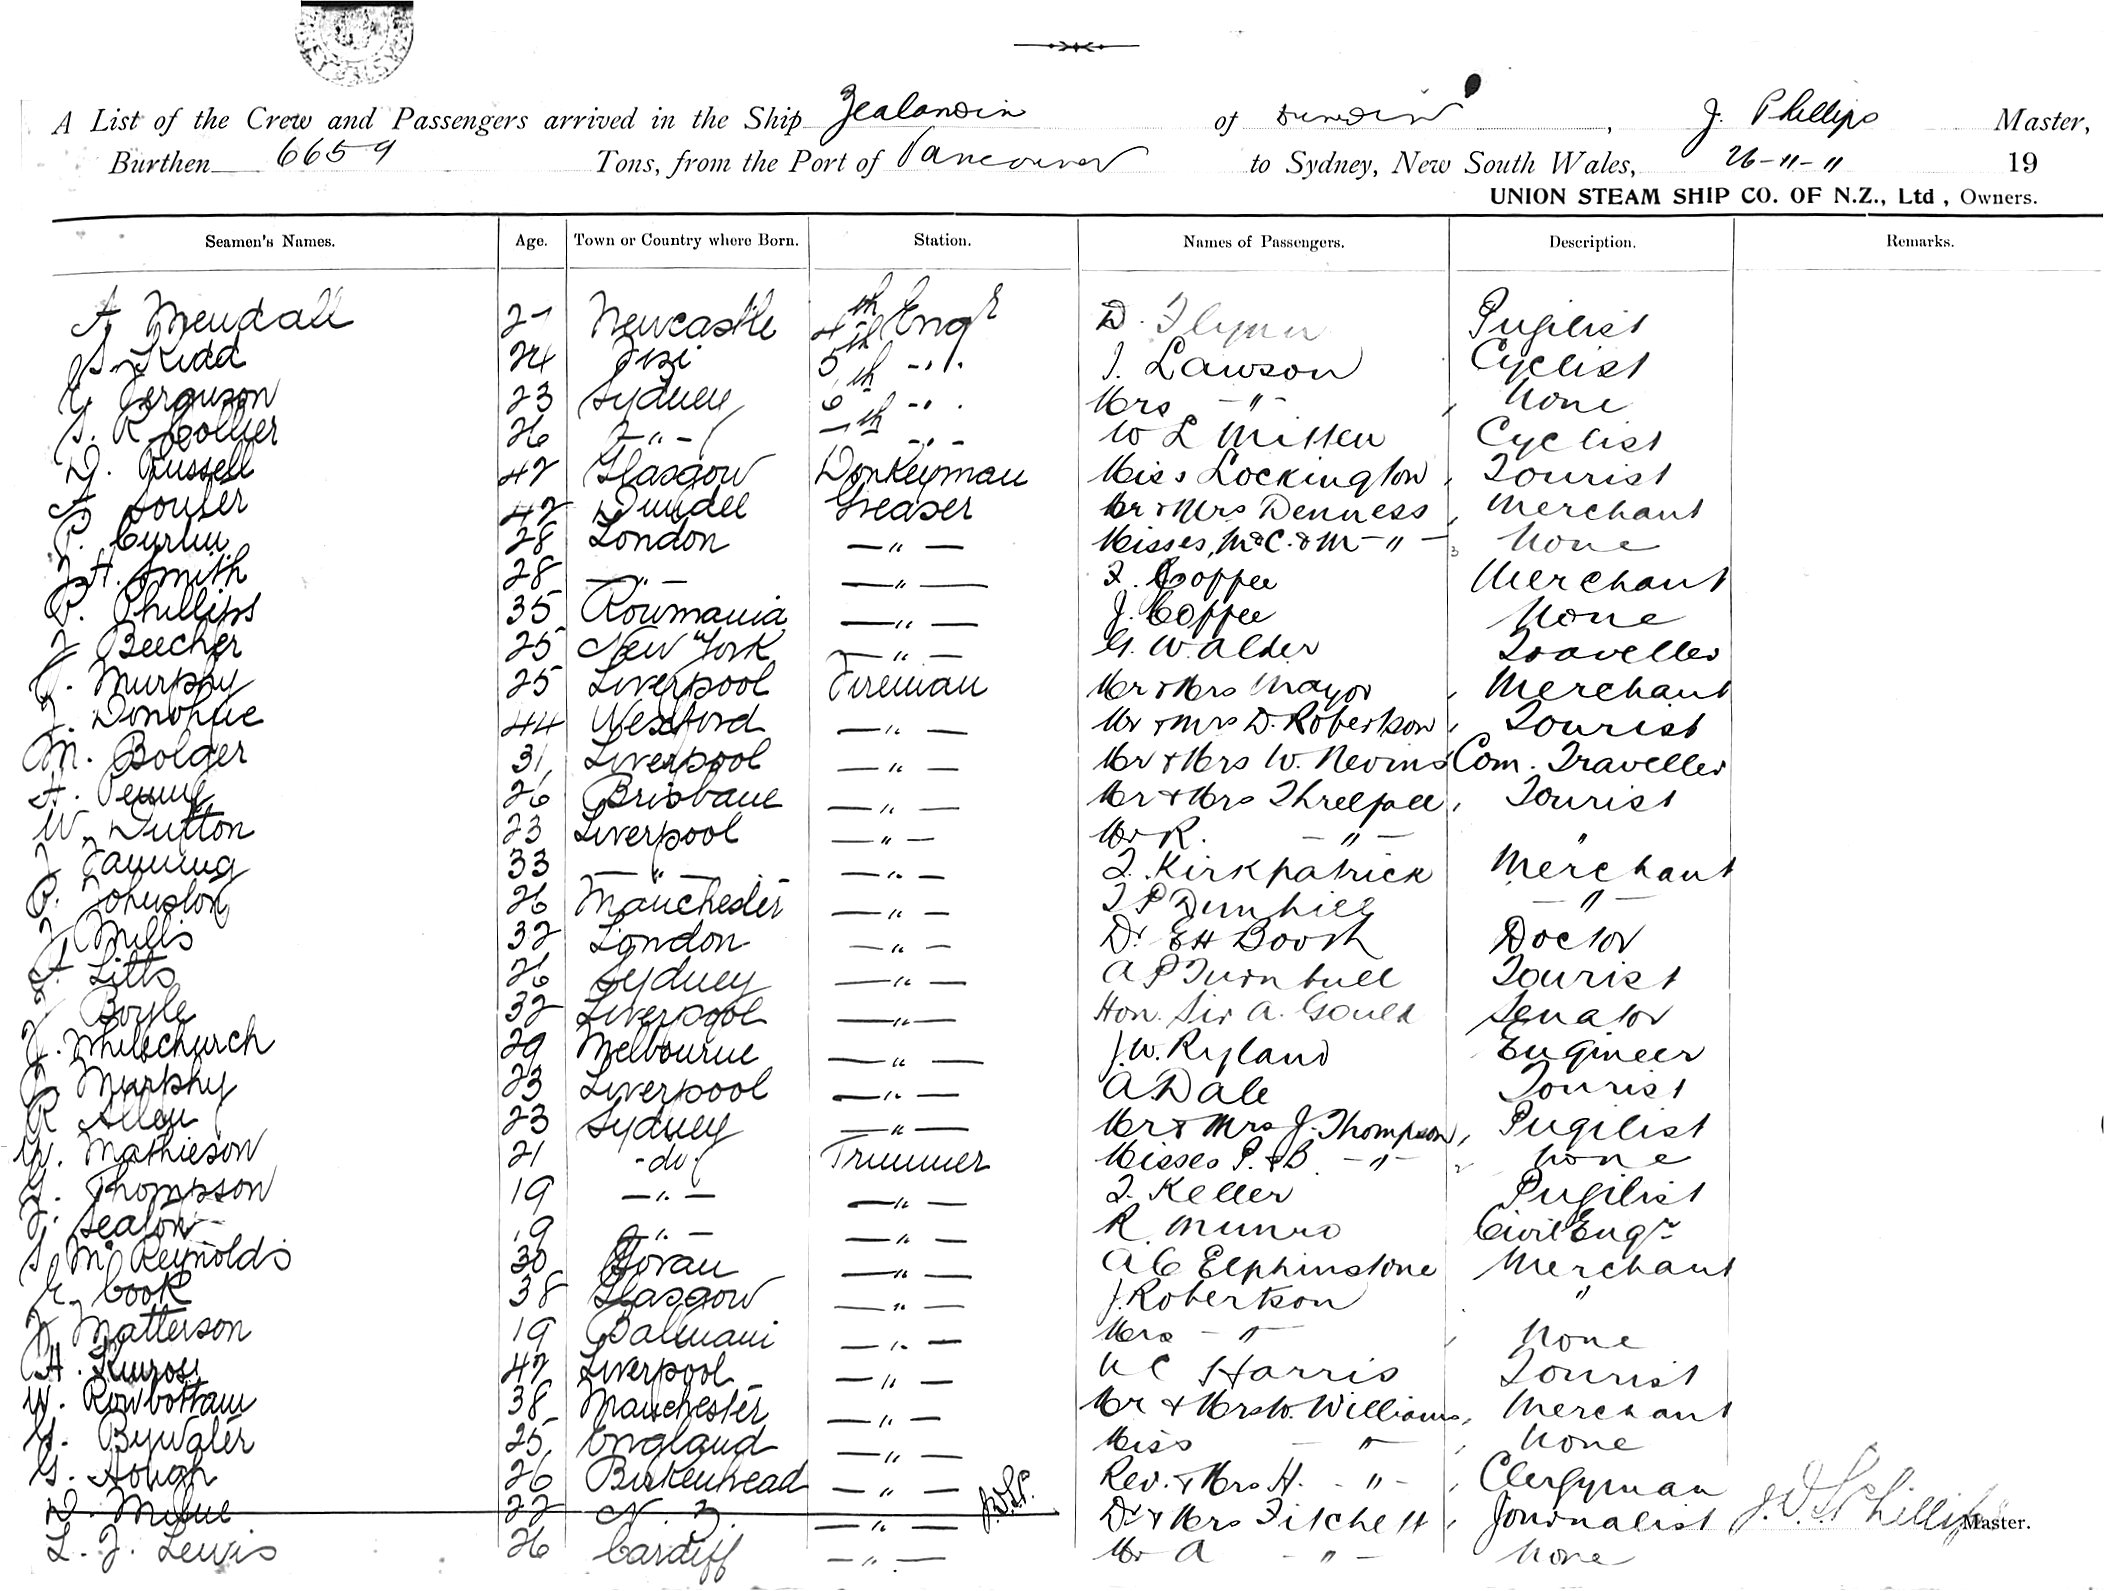 A List of the Crew and Passengers arrived in the Ship Zealandia of Dunedin, J. Phillips Master,
Burthen 6659 Tons, from the Port of Vancouver to Sydney, New South Wales, 26-11-11 19
UNION STEAM SHIP CO. OF N.Z., Ltd, Owners.
Seamen's Names. Age. Town or Country where Born. Station. Names of Passengers. Description. Remarks.
A Mendall 27 Newcastle 4th Engr D. Flynn Pugilist
Kidd 24 Fiji 5th -"- J. Lawson Cyclist
Ferguson 23 Sydney 6th -"- Mrs -"- None
R Collier 26 -"- th -"- W L Mitten Cyclist
D. Russell 42 Glasgow Donkeyman Miss Lockington, Tourist
A Souter 42 Dundee Greaser Mr & Mrs Denness, Merchant
P. 28 London -"- Misses, M & C. & M -"- None
J H. Smith 28 -"- -"- F. Coffee Merchant
P. Phillips 35 Roumania -"- J. Coffee None
J Beecher 25 New York -"- G. W. Alder Traveller
J. Murphy 25 Liverpool Fireman Mr & Mrs Mayor, Merchant
J. Donohue 44 Wexford -"- Mr & Mrs D. Robertson, Tourist
M. Bolger 31 Liverpool -"- Mr & Mrs W. Nevins Com. Traveller
A. Penny 26 Brisbane -"- Mr & Mrs Threlfall, Tourist
W. Dutton 23 Liverpool -"- Mr R. -"- "
J Fanning 33 -"- -"- T. Kirkpatrick Merchant
P. Johnston 26 Manchester -"- T P Dunhill -"-
J Mills 32 London -"- Dr E H Booth Doctor
A. Litts 26 Sydney -"- A P Turnbull Tourist
J Boyle 32 Liverpool -"- Hon. Sir A. Gould Senator
J. Whitechurch 29 Melbourne -"- J. W. Ryland Engineer
P. Murphy 23 Liverpool -"- A. Dale Tourist
R Allen 23 Sydney -"- Mr & Mrs J. Thompson, Pugilist
W. Mathieson 21 -do- Trimmer Misses P. & B -"- None
G. Thompson 19 -"- -"- T. Keller Pugilist
J. Seaton 19 -"- -"- R. Munro Civil Engr
S McReynolds 30 Govan -"- A C Elphinstone Merchant
E. Cook 38 Glasgow -"- J. Robertson "
J Matterson 19 Balmain -"- Mrs -"- None
A. Kinross 42 Liverpool -"- Harris Tourist
W. Rowbottam 38 Manchester -"- Mr & Mrs W. Williams, Merchant
G. Bywater 25 England -"- Miss -"- None
G. Hough 26 Birkenhead -"- Rev. & Mrs H. -"-, Clergyman
D. Milne 22 N. Z. -"- J.D.S.P. Dr & Mrs Fitchett, Journalist J. D. S. Phillips Master.
L. J. Lewis 26 Cardiff -"- Mr A -"- None